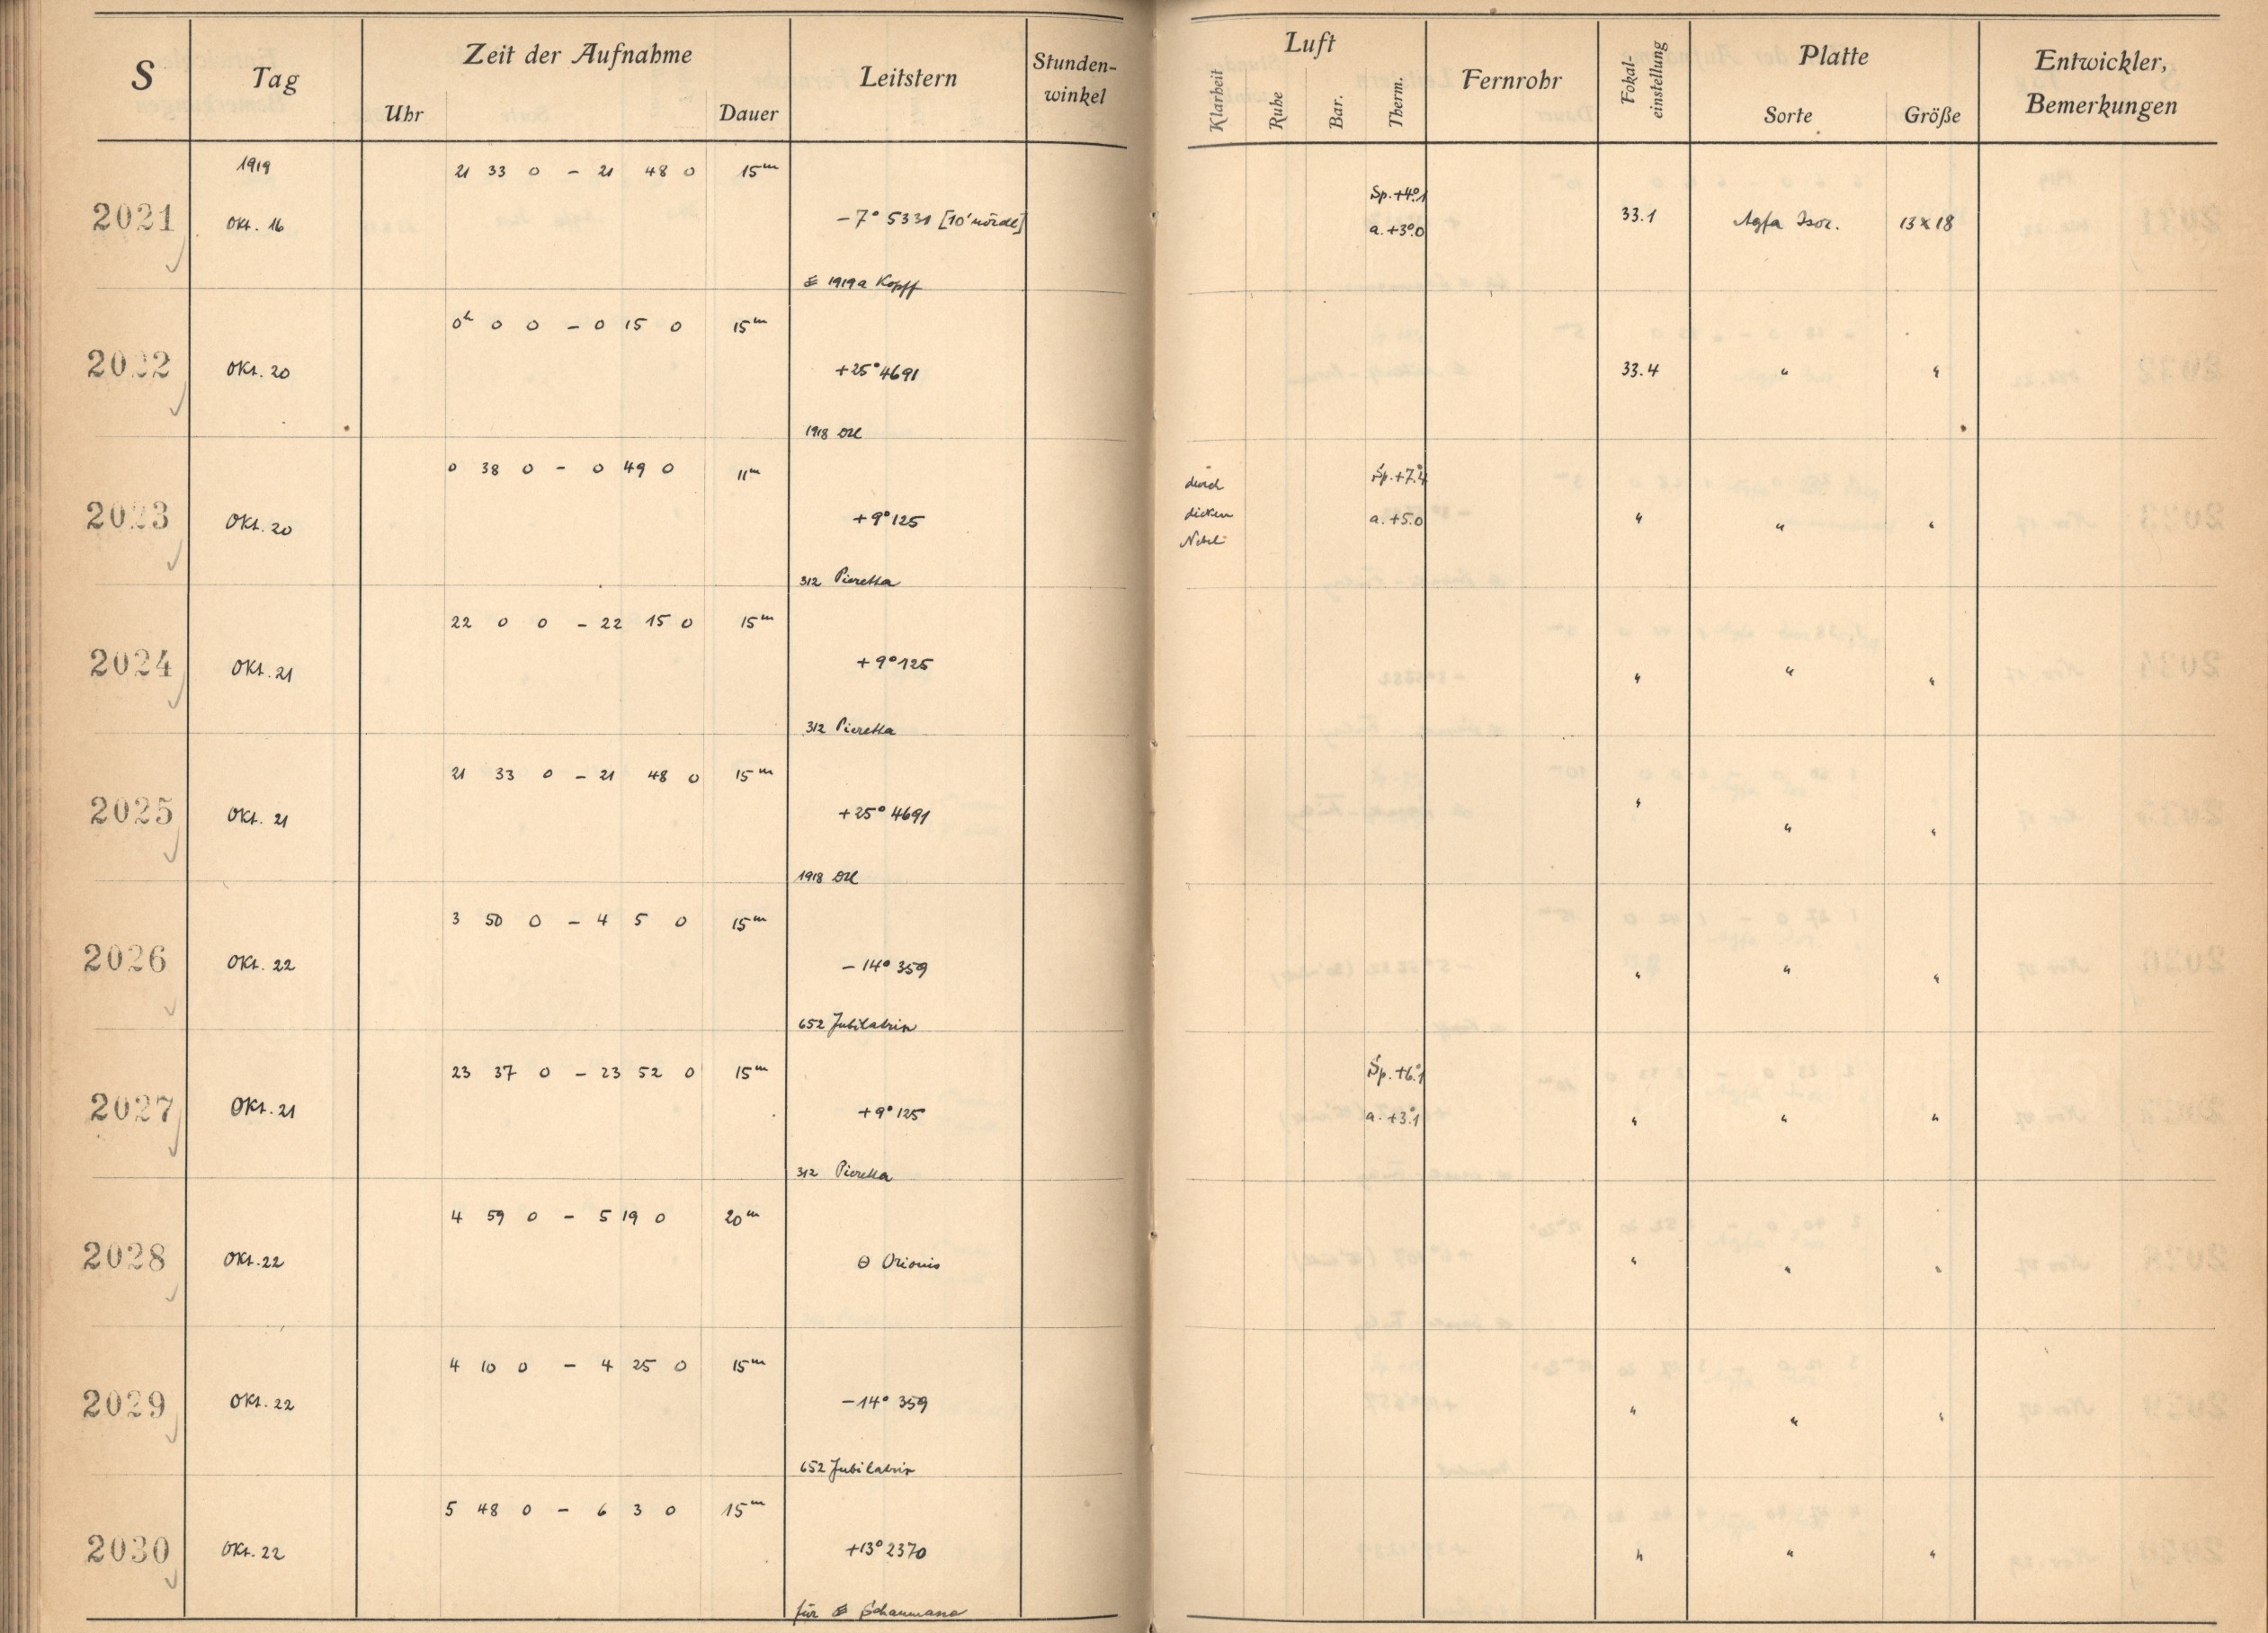 S Tag Zeit der Aufnahme Leitstern Stunden-winkel Luft Fernrohr Fokal-einstellung Platte Entwickler, Bemerkungen
Uhr Dauer Klarheit Ruhe Bar. Therm. Sorte Größe
1919 21 33 0 - 21 48 0 15m
Sp. +4°.1
2021 Okt. 16 -7° 5331 [10' nördl] a. +3°.0 33.1 Agfa Isor. 13 x 18
1919a Kopff
0h 0 0 - 0 15 0 15m
2022 Okt. 20 +25° 4691 33.4 " "
1918
0 38 0 - 0 49 0 11m
durch Sp. +7°.4
2023 Okt. 20 +9° 125 dicken a. +5.0 " " "
Nebel
312 Pieretta
22 0 0 - 22 15 0 15m
2024 Okt. 21 +9° 125 " " "
312 Pieretta
21 33 0 - 21 48 0 15m
2025 Okt. 21 +25° 4691 " " "
1918
3 50 0 - 4 5 0 15m
2026 Okt. 22 -14° 359 " " "
652 Jubilatrix
23 37 0 - 23 52 0 15m
Sp. +6°.1
2027 Okt. 21 +9° 125 a. +3°.1 " " "
312 Pieretta
4 59 0 - 5 19 0 20m
2028 Okt. 22 Θ Orionis " " "
4 10 0 - 4 25 0 15m
2029 Okt. 22 -14° 359 " " "
652 Jubilatrix
5 48 0 - 6 3 0 15m
2030 Okt. 22 +13° 2370 " " "
für Schaumasse